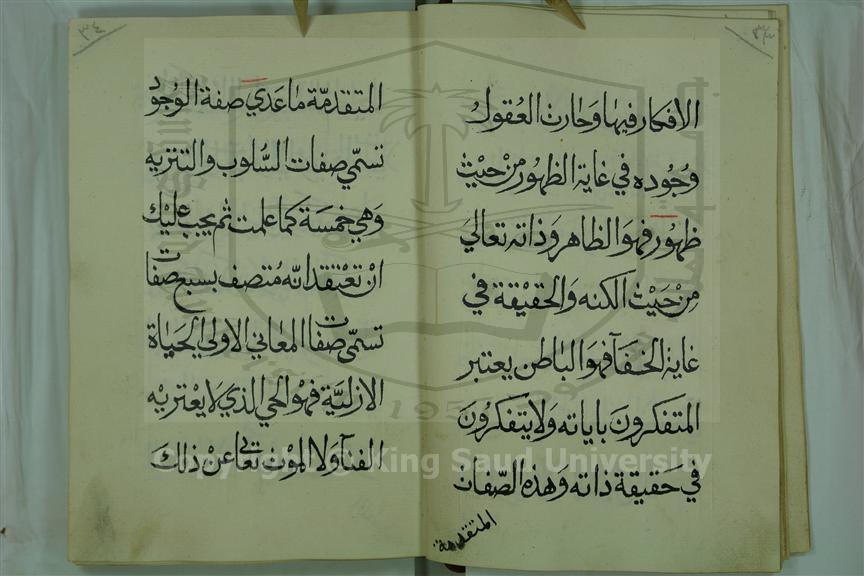 ٣٣
الافكار فيها وحارت العقول
وجوده في غاية الظهور من حيث
ظهور فهو الظاهر وذاته تعالي
من حيث الكنه والحقيقة في
غاية الخفآ فهو الباطن يعتبر
المتفكرون باياته ولا يتفكرون
في حقيقة ذاته وهذه الصفات
المتقدمة
٣٤
المتقدمة ما عدي صفة الوجود
تسمي صفات السلوب والتنزيه
وهي خمسة كما علمت ثم يجب عليك
ان تعتقد انه متصف بسبع صفات
تسمي صفات المعاني الاولي الحياة
الازلية فهو الحي الذي لا يعتريه
الفنآ ولا الموت تعالي عن ذلك
King Saud University